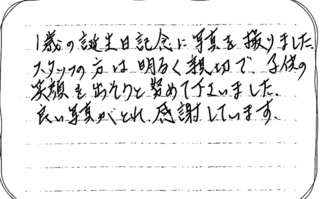 1歳の誕生日記念に写真を撮りました。
スタッフの方は明るく親切で、子供の
笑顔を出そうと努めて下さいました。
良い写真がとれ、感謝しています。